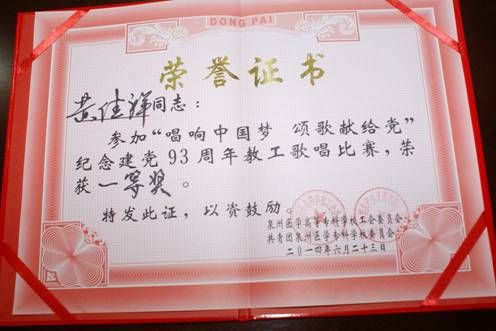 DONG PAI
荣誉证书
黄佳辉同志：
参加“唱响中国梦 颂歌献给党”
纪念建党93周年教工歌唱比赛，荣
获一等奖。
特发此证，以资鼓励。
泉州医学高等专科学校工会委员会
共青团泉州医学高等专科学校委员会
二〇一四年六月二十三日